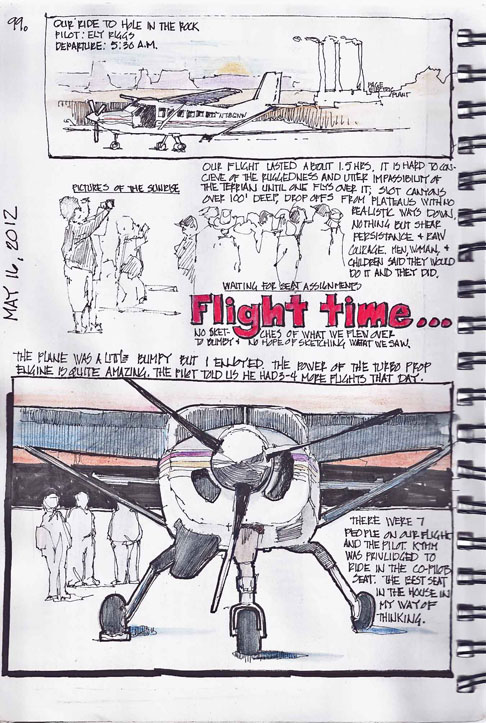 99.
OUR RIDE TO HOLE IN THE ROCK
PILOT: ELY RIGGS
DEPARTURE: 5:30 A.M.
PAGE
PLANT
MAY 16, 2012
PICTURES OF THE SUNRISE
OUR FLIGHT LASTED ABOUT 1.5 HRS, IT IS HARD TO CON-
CIEVE OF THE RUGGEDNESS AND UTTER IMPASSIBILITY OF
THE TERRIAN UNTIL ONE FLYS OVER IT, SLOT CANYONS
OVER 100' DEEP, DROP OFFS FROM PLATEAUS WITH NO
REALISTIC WAYS DOWN,
NOTHING BUT SHEAR
PERSISTANCE & RAW
COURAGE. MEN, WOMAN, &
CHILDREN SAID THEY WOULD
DO IT AND THEY DID.
WAITING FOR SEAT ASSIGNMENTS
Flight time...
NO SKET-CHES OF WHAT WE FLEW OVER
TO BUMPY & NO HOPE OF SKETCHING WHAT WE SAW.
THE PLANE WAS A LITTLE BUMPY BUT I ENJOYED. THE POWER OF THE TURBO PROP
ENGINE IS QUITE AMAZING. THE PILOT TOLD US HE HAD 3-4 MORE FLIGHTS THAT DAY.
THERE WERE 7
PEOPLE ON OUR FLIGHT
AND THE PILOT. KYHM
WAS PRIVLIDGED TO
RIDE IN THE CO-PILOTS
SEAT. THE BEST SEAT
IN THE HOUSE IN
MY WAY OF
THINKING.